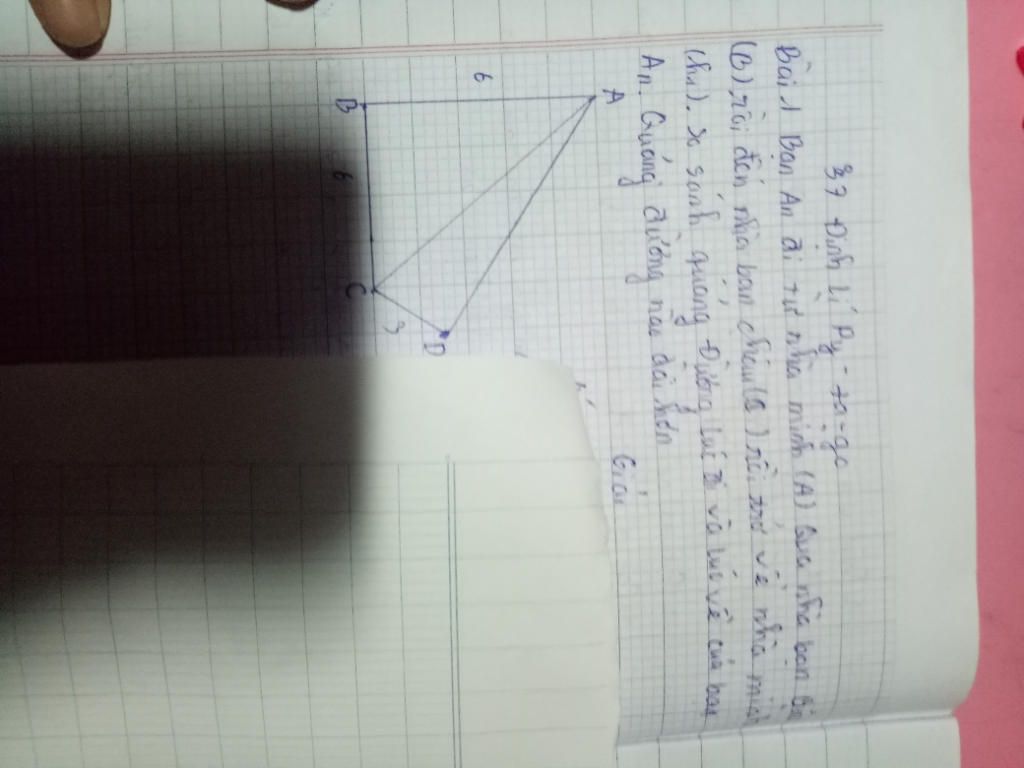 §7 Định lí Py-ta-go
Bài 1 Bạn An đi từ nhà mình (A) qua nhà bạn
(B) rồi đến nhà bạn châu (C) rồi trở về nhà mình
(h1). So sánh quãng Đường lúc đi và lúc về của bạn
An. Quãng đường nào dài hơn
Giải
A
6
B
6
C
3
D